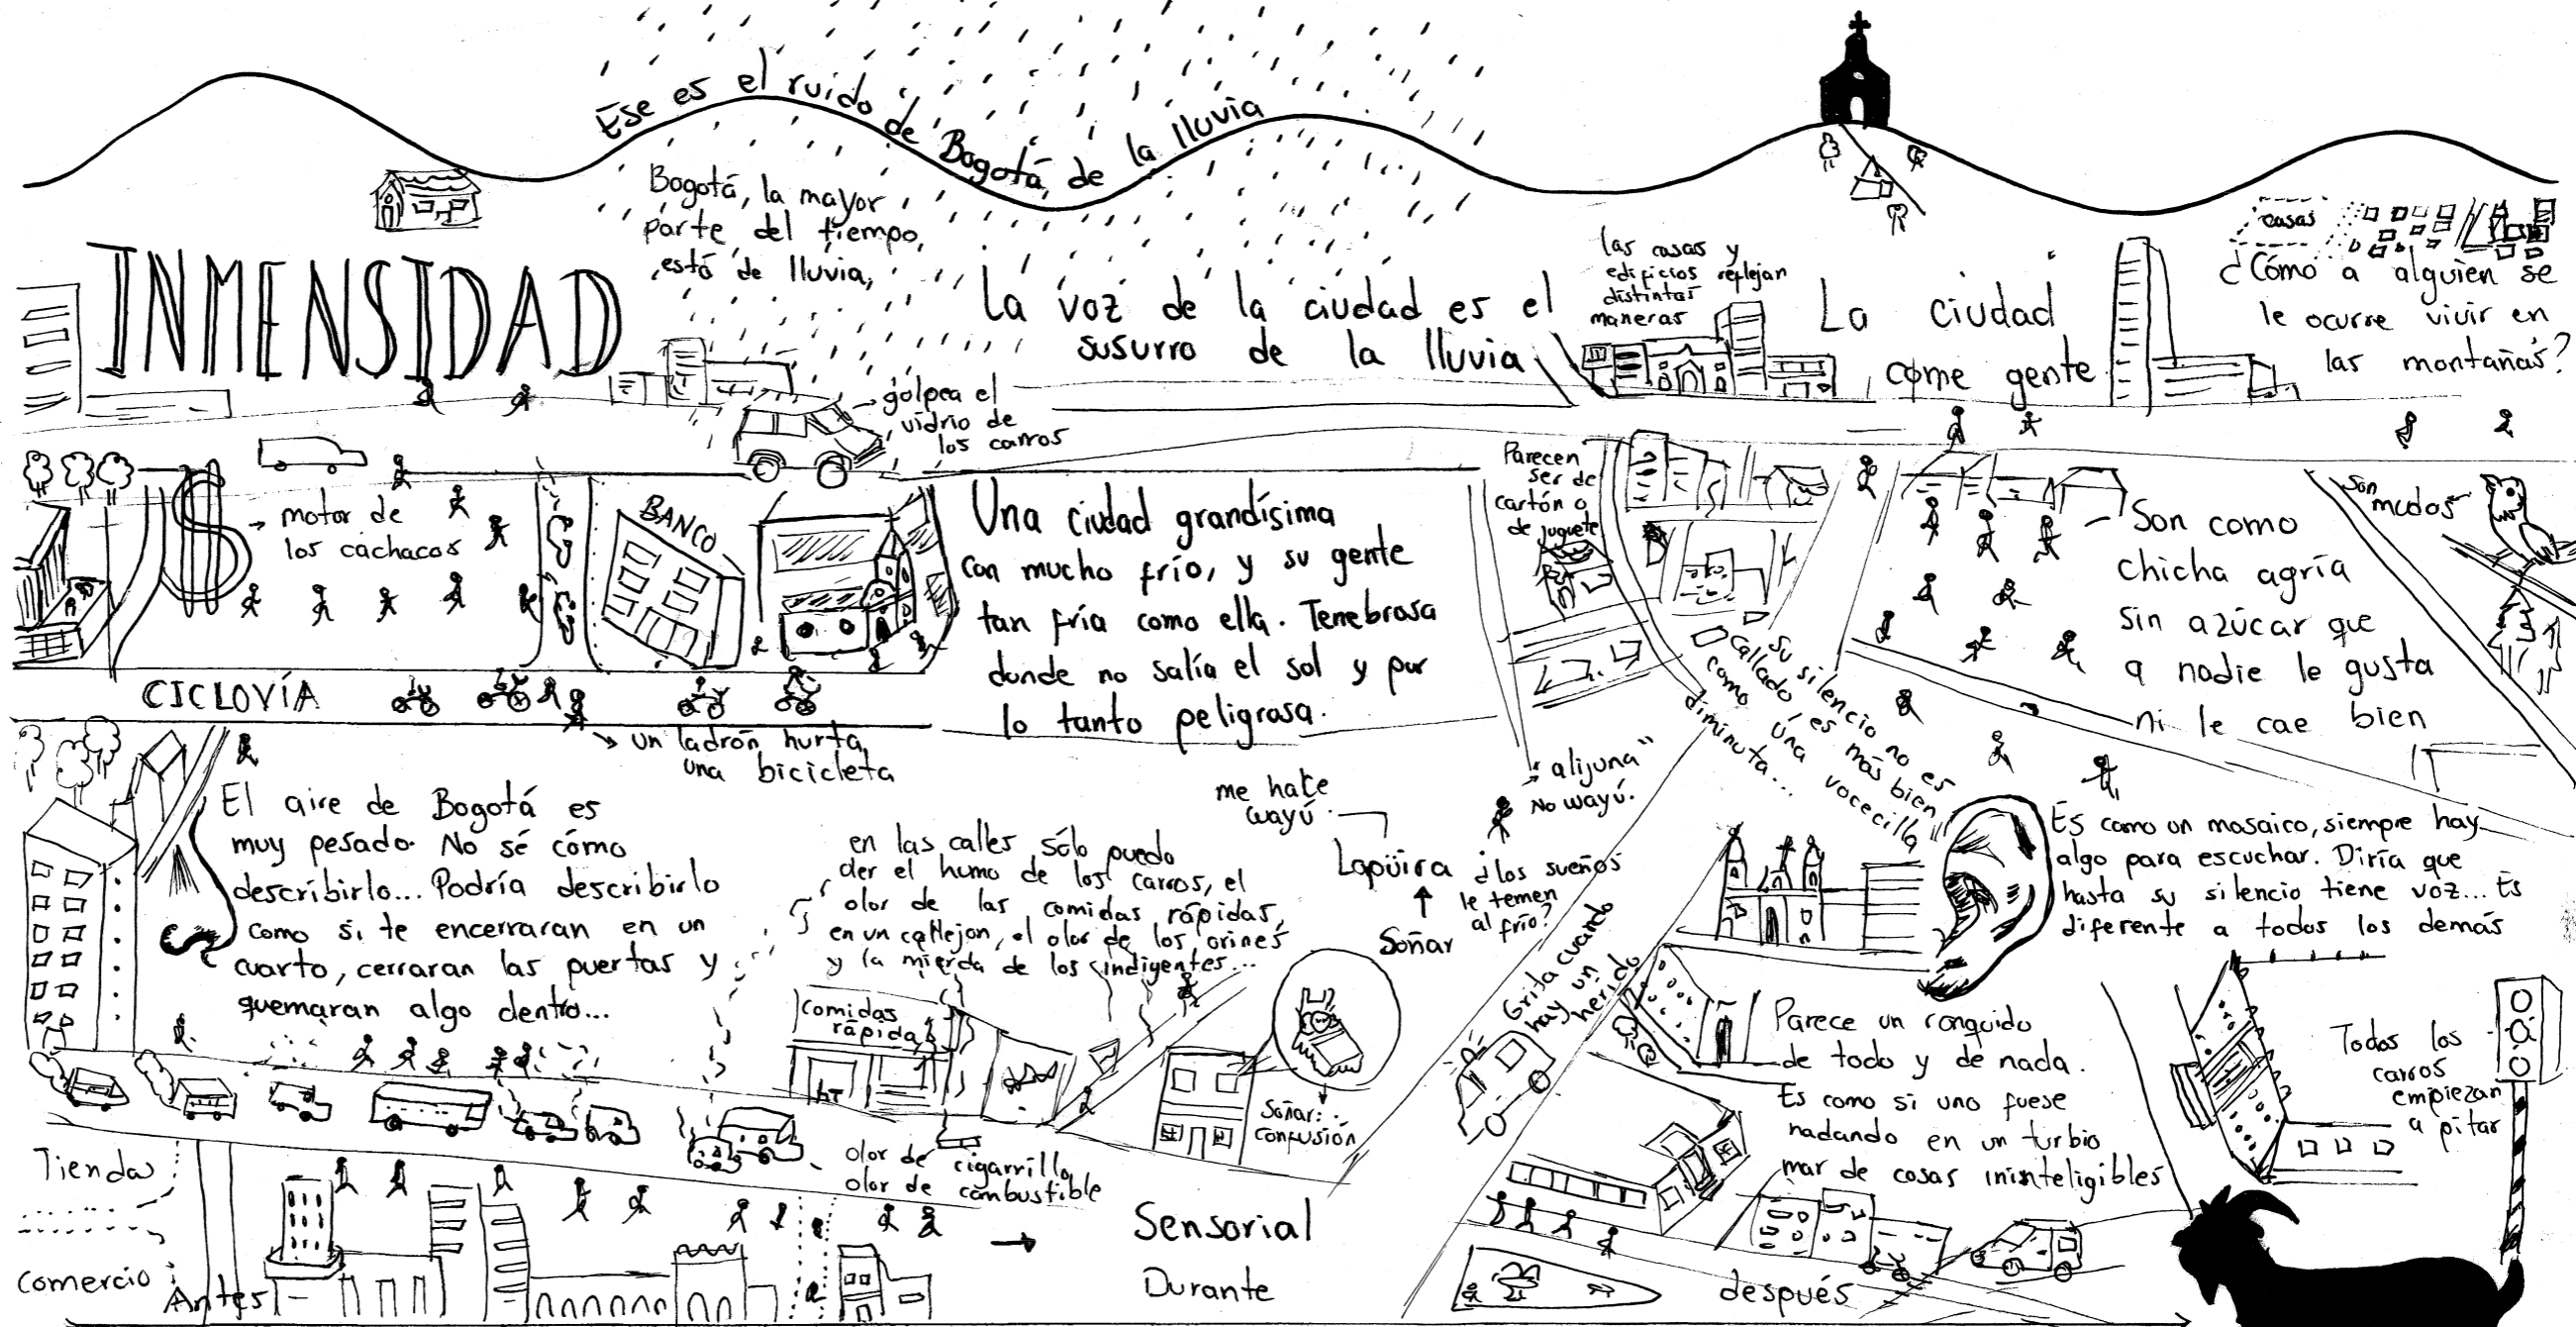 Ese es el ruido de Bogotá, de la lluvia
Bogotá, la mayor
parte del tiempo,
está de lluvia,
INMENSIDAD
La voz de la ciudad es el
susurro de la lluvia
las casas y
edificios reflejan
distintas
maneras
La ciudad
come gente
casas
¿Cómo a alguien se
le ocurre vivir en
las montañas?
golpea el
vidrio de
los carros
$
motor de
los cachacos
BANCO
Una ciudad grandísima
con mucho frío, y su gente
tan fría como ella. Tenebrosa
donde no salía el sol y por
lo tanto peligrosa.
Parecen
ser de
cartón o
de juguete
Son como
chicha agría
sin azúcar que
a nadie le gusta
ni le cae bien
Son
mudos
CICLOVÍA
un ladrón hurta
una bicicleta
Su silencio no es
callado, es más bien
como una vocecilla
diminuta...
El aire de Bogotá es
muy pesado. No sé cómo
describirlo... Podría describirlo
como si te encerraran en un
cuarto, cerraran las puertas y
quemaran algo dentro...
en las calles sólo puedo
oler el humo de los carros, el
olor de las comidas rápidas,
en un callejon, el olor de los orines
y la mierda de los indigentes...
me hace
wayú
Lapüira
Soñar
alijuna"
No wayú.
¿los sueños
le temen
al frío?
Grita cuando
hay un
herido
Es como un mosaico, siempre hay
algo para escuchar. Diría que
hasta su silencio tiene voz... Es
diferente a todos los demás
comidas
rápidas
Soñar:
confusión
Parece un ronquido
de todo y de nada.
Es como si uno fuese
nadando en un turbio
mar de cosas ininteligibles
Todos los
carros
empiezan
a pitar
olor de cigarrillo
olor de combustible
Tienda
comercio
Antes
Sensorial
Durante
después